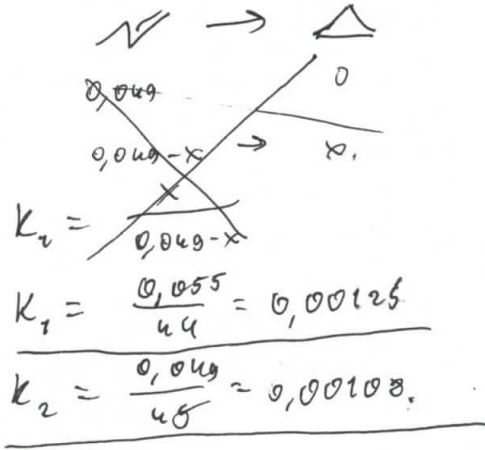 →
0,049 0
0,049-x → x.
K₂ = x / 0,049-x
K₁ = 0,055 / 44 = 0,00125
K₂ = 0,049 / 45 = 0,00108.